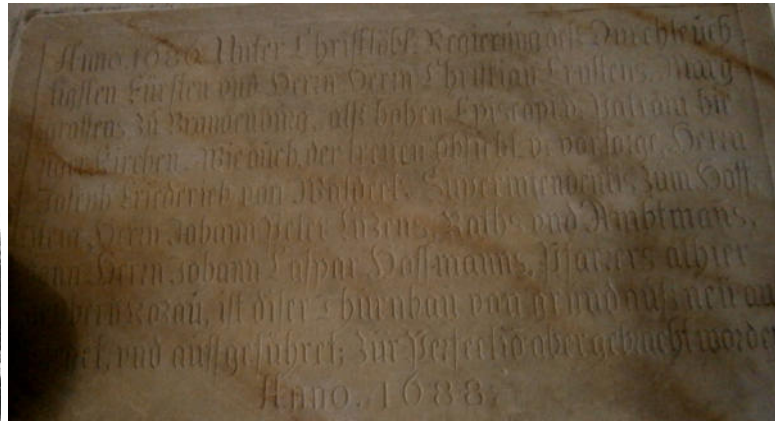 Anno. 1686 Unter Christlöbl: Regierung deß Durchleuch-
tigsten Fürsten und Herrn Herrn Christian Ernstens, Marg
graffens zu Brandenburg, alß hohen Episcopi v. Patroni hie
Kirchen. Wie auch der treuen obsicht v. vorsorge, Herrn
Joseph Friederich von Waldeck, Superintendents zum Hoff,
Herrn Johann Peter Raths und Ambtmans,
Herrn Johann Caspar Hoffmanns, Pfarrers alhier
ist diser Thurnbau von grund auß neu
und auffgeführet; zur Perfectiō aber gebracht worde
Anno. 1688.